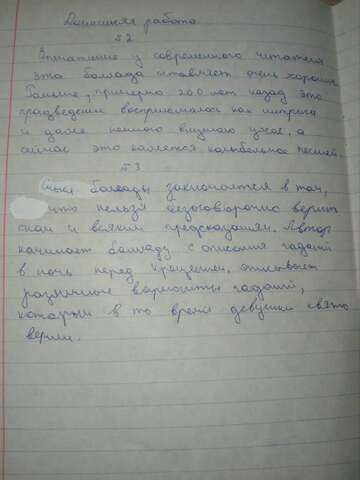 Домашняя работа
№2
Впечатление у современного читателя
эта баллада оставляет очень хорошие
Раньше, примерно 200 лет назад это
произведение воспринималось как
и даже немного ужас, а
сейчас это кажется колыбельной песней.
№3
Смысл баллады заключается в том,
что нельзя безоговорочно верить
снам и всяким предсказаниям. Автор
начинает балладу с описания гаданий
в ночь перед крещением, описывает
различные варианты гаданий,
которым в то время девушки свято
верили.